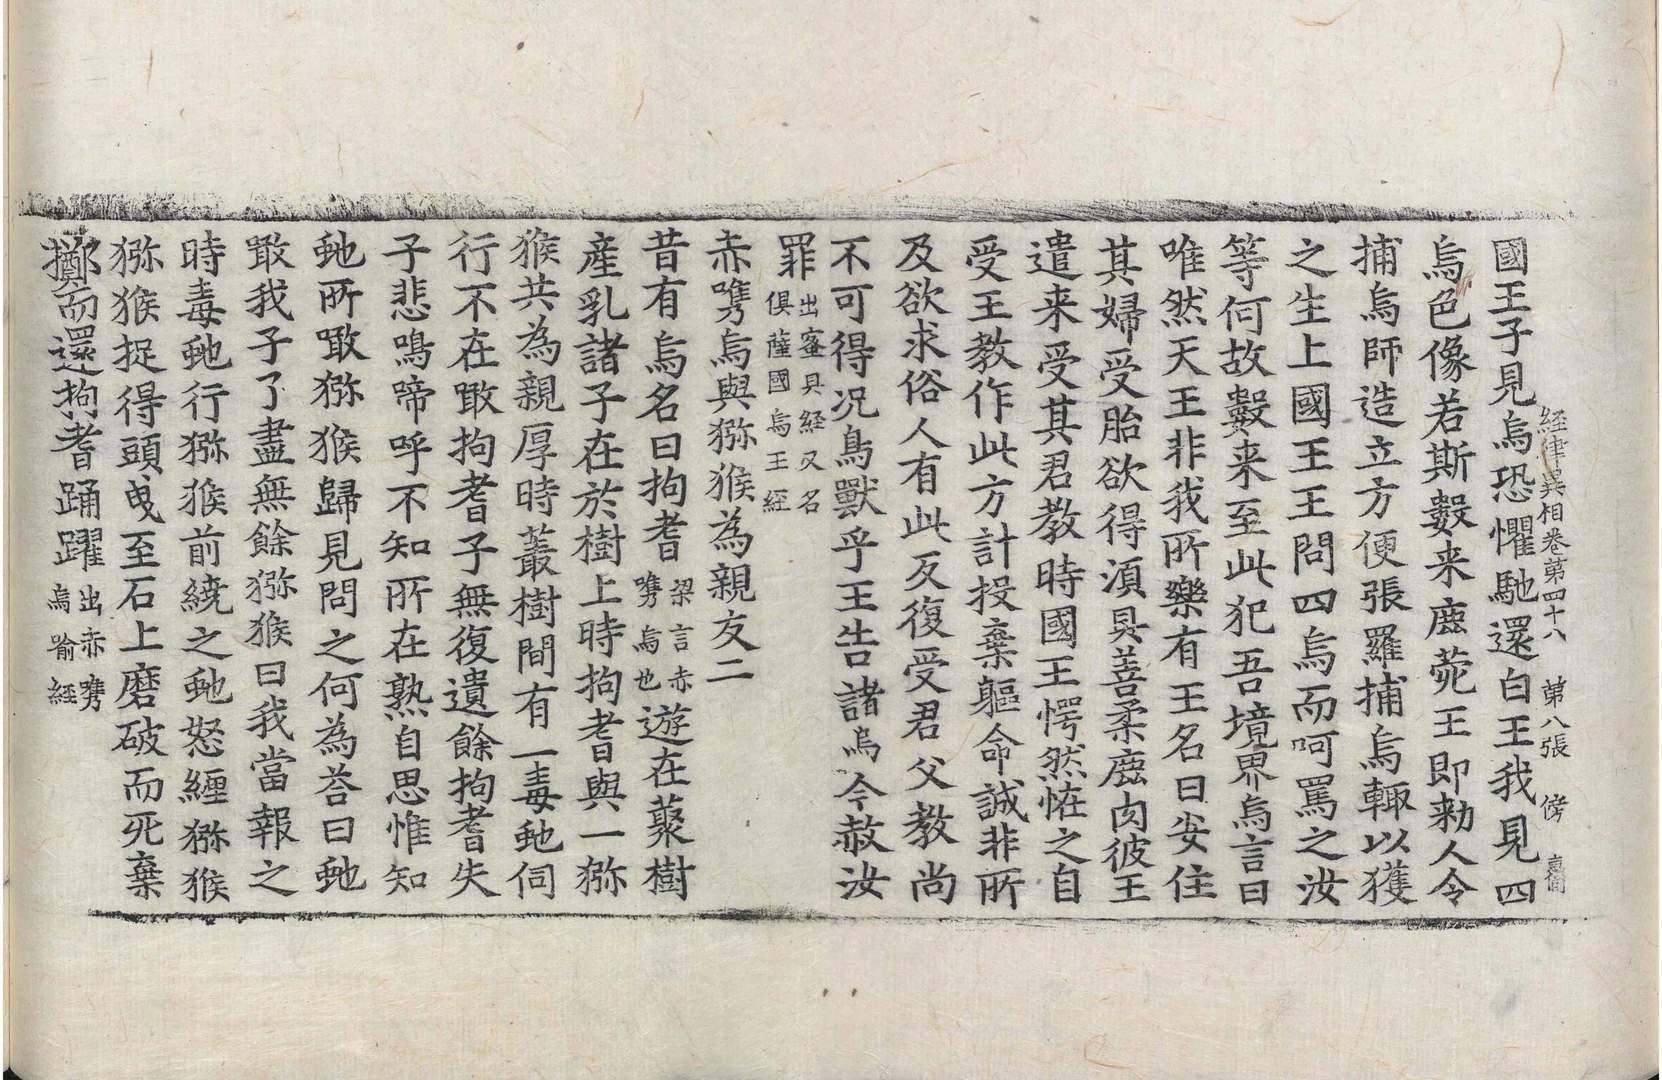 経律異相卷第四十八　第八張　傍
國王子見烏恐懼馳還白王我見四
烏色像若斯數来鹿菀王即勑人令
捕烏師造立方便張羅捕烏輙以獲
之生上國王王問四烏而呵罵之汝
等何故數来至此犯吾境界烏言曰
唯然天王非我所樂有王名曰安住
其婦受胎欲得湏具善柔鹿肉彼王
遣来受其君教時國王愕然恠之自
受王教作此方計投棄軀命誠非所
及欲求俗人有此反復受君父教尚
不可得况鳥獸乎王告諸烏今赦汝
罪出蜜具経又名俱薩國烏王経
赤嘴烏與猕猴為親友二
昔有烏名曰拘耆梁言赤嘴烏也遊在藂樹
産乳諸子在於樹上時拘耆與一猕
猴共為親厚時叢樹間有一毒虵伺
行不在噉拘耆子無復遺餘拘耆失
子悲鳴啼呼不知所在熟自思惟知
虵所噉猕猴歸見問之何為荅曰虵
噉我子了盡無餘猕猴曰我當報之
時毒虵行猕猴前繞之虵怒纒猕猴
猕猴捉得頭曳至石上磨破而死棄
擲而還拘耆踊躍出赤嘴烏喻経